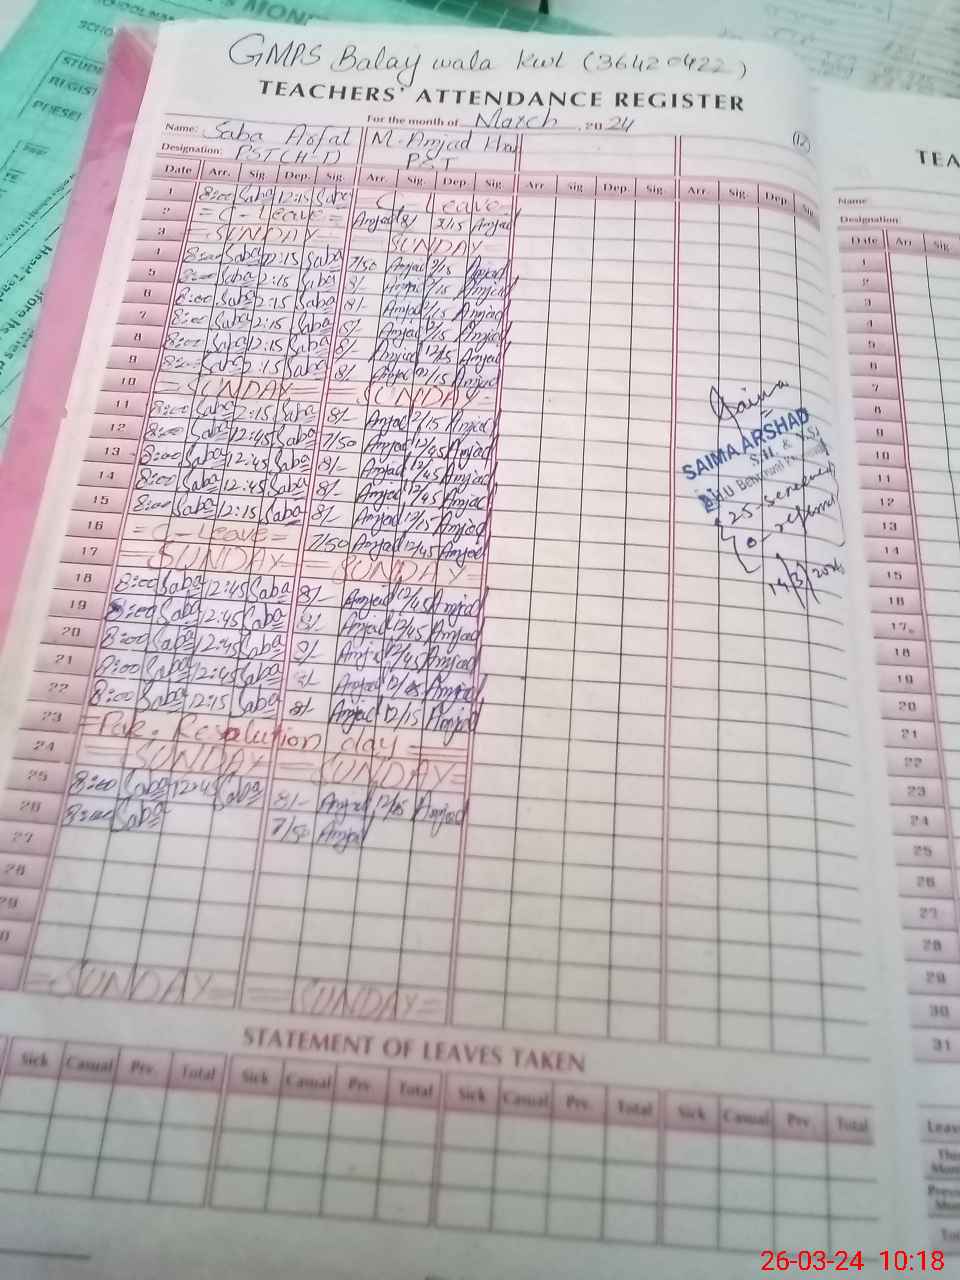 GMPS Balay wala kwl (36420422)
TEACHERS' ATTENDANCE REGISTER
For the month of March, 2024
(12)
Name: Saba M. Amjad
Designation: PST(H-T) PST
Date Arr. Sig. Dep. Sig. Arr. Sig. Dep. Sig. Arr. Sig. Dep. Sig. Arr. Sig. Dep. Sig.
1 8:00 Saba 12:15 Saba C-Leave
2 = C-Leave = Amjad 8/ 12/15 Amjad
3 = SUNDAY = SUNDAY =
4 8:00 Saba 12:15 Saba 7/50 Amjad 12/15 Amjad
5 8:00 Saba 12:15 Saba 8/- Amjad 12/15 Amjad
6 8:00 Saba 12:15 Saba 8/- Amjad 12/15 Amjad
7 8:00 Saba 12:15 Saba 8/- Amjad 12/15 Amjad
8 8:00 Saba 12:15 Saba 8/- Amjad 12/15 Amjad
9 8:00 Saba 12:15 Saba 8/- Amjad 12/15 Amjad
10 = SUNDAY = = SUNDAY =
11 8:00 Saba 12:15 Saba 8/- Amjad 12/15 Amjad
12 8:00 Saba 12:45 Saba 7/50 Amjad 12/45 Amjad
13 8:00 Saba 12:45 Saba 8/- Amjad 12/45 Amjad
14 8:00 Saba 12:45 Saba 8/- Amjad 12/45 Amjad
15 8:00 Saba 12:15 Saba 8/- Amjad 12/15 Amjad
16 = C-Leave = 7/50 Amjad 12/45 Amjad
17 = SUNDAY = = SUNDAY =
18 8:00 Saba 12:45 Saba 8/- Amjad 12/45 Amjad
19 8:00 Saba 12:45 Saba 8/- Amjad 12/45 Amjad
20 8:00 Saba 12:45 Saba 8/- Amjad 12/45 Amjad
21 8:00 Saba 12:45 Saba 8/- Amjad 12/45 Amjad
22 8:00 Saba 12:15 Saba 8/- Amjad 12/15 Amjad
23 = Pak. Resolution day =
24 = SUNDAY = SUNDAY =
25 8:00 Saba 12:45 Saba 8/- Amjad 12/45 Amjad
26 8:00 Saba 7/50 Amjad
27
28
29
= SUNDAY = = SUNDAY =
Saima
SAIMA ARSHAD
14/3/2024
STATEMENT OF LEAVES TAKEN
Sick Casual Prv. Total Sick Casual Prv. Total Sick Casual Prv. Total Sick Casual Prv. Total
TEA
Name
Designation
Date Arr. Sig.
1
2
3
4
5
6
7
8
9
10
11
12
13
14
15
16
17
18
19
20
21
22
23
24
25
26
27
28
29
30
31
26-03-24 10:18